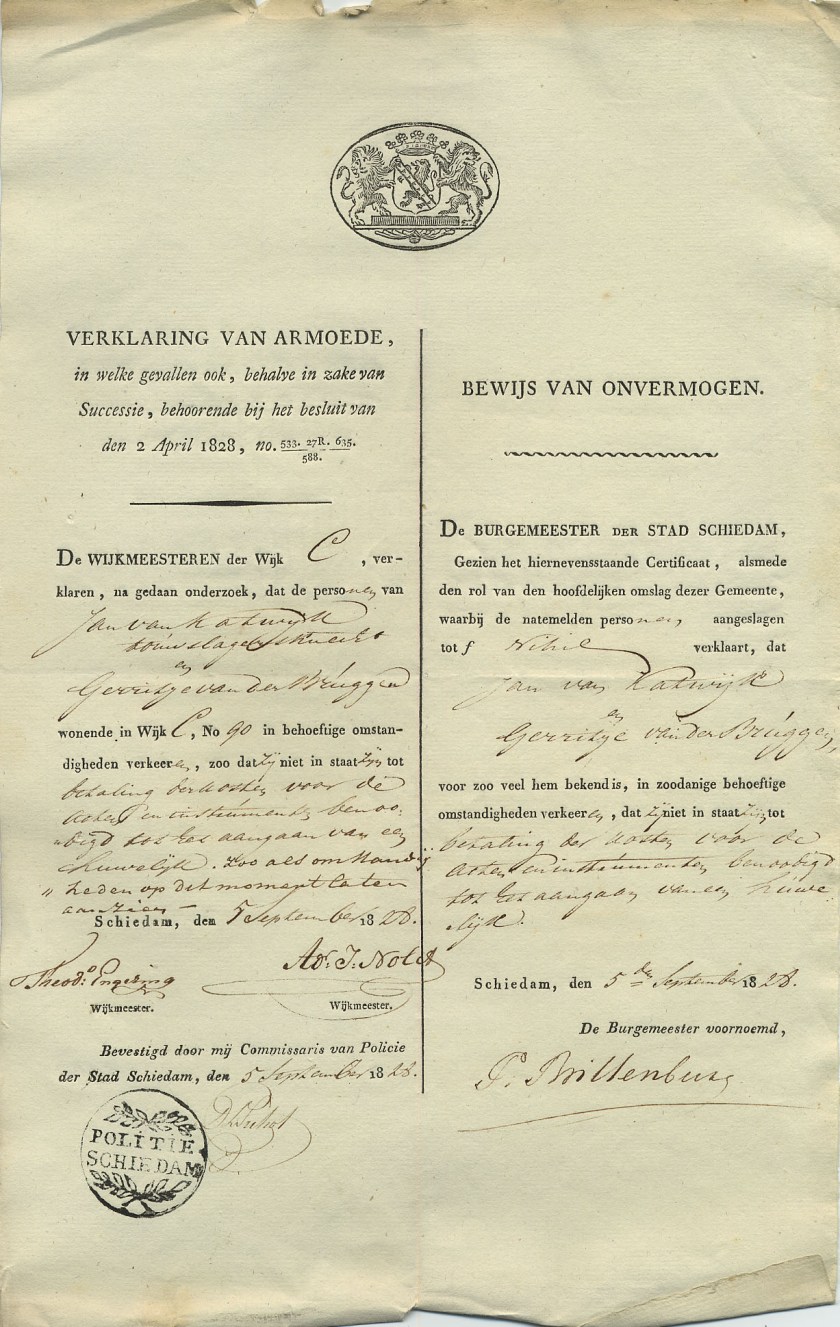 VERKLARING VAN ARMOEDE,
in welke gevallen ook, behalve in zake van
Successie, behoorende bij het besluit van
den 2 April 1828, no. 533. 27R. 635.
588.
De WIJKMEESTEREN der Wijk C, ver-
klaren, na gedaan onderzoek, dat de personen van
Jan van Katwijk
touwslagersknecht
en
Gerritje van der Brúggen
wonende in Wijk C, No 90 in behoeftige omstan-
digheden verkeeren, zoo dat zij niet in staat zijn tot
betaling der kosten voor de
acten en instrúmenten benoo-
digd tot het aangaan van een
huwelijk. Zoo als omstandig
"heden op dit moment laten
aanzien
Schiedam, den 5 September 1828.
Theod: Engering
Wijkmeester.
Ad. J. Nolet
Wijkmeester.
Bevestigd door mij Commissaris van Policie
der Stad Schiedam, den 5 September 1828.
POLITIE
SCHIEDAM
BEWIJS VAN ONVERMOGEN.
De BURGEMEESTER DER STAD SCHIEDAM,
Gezien het hiernevensstaande Certificaat, alsmede
den rol van den hoofdelijken omslag dezer Gemeente,
waarbij de natemelden personen aangeslagen
tot f Nihil verklaart, dat
Jan van Katwijk
en
Gerritje van der Brúggen
voor zoo veel hem bekend is, in zoodanige behoeftige
omstandigheden verkeeren, dat zij niet in staat zijn tot
betaling der kosten voor de
acten en instrúmenten benoodigd
tot het aangaan van een húwe
lijk.
Schiedam, den 5 den September 1828.
De Burgemeester voornoemd,
P. Brittenburg